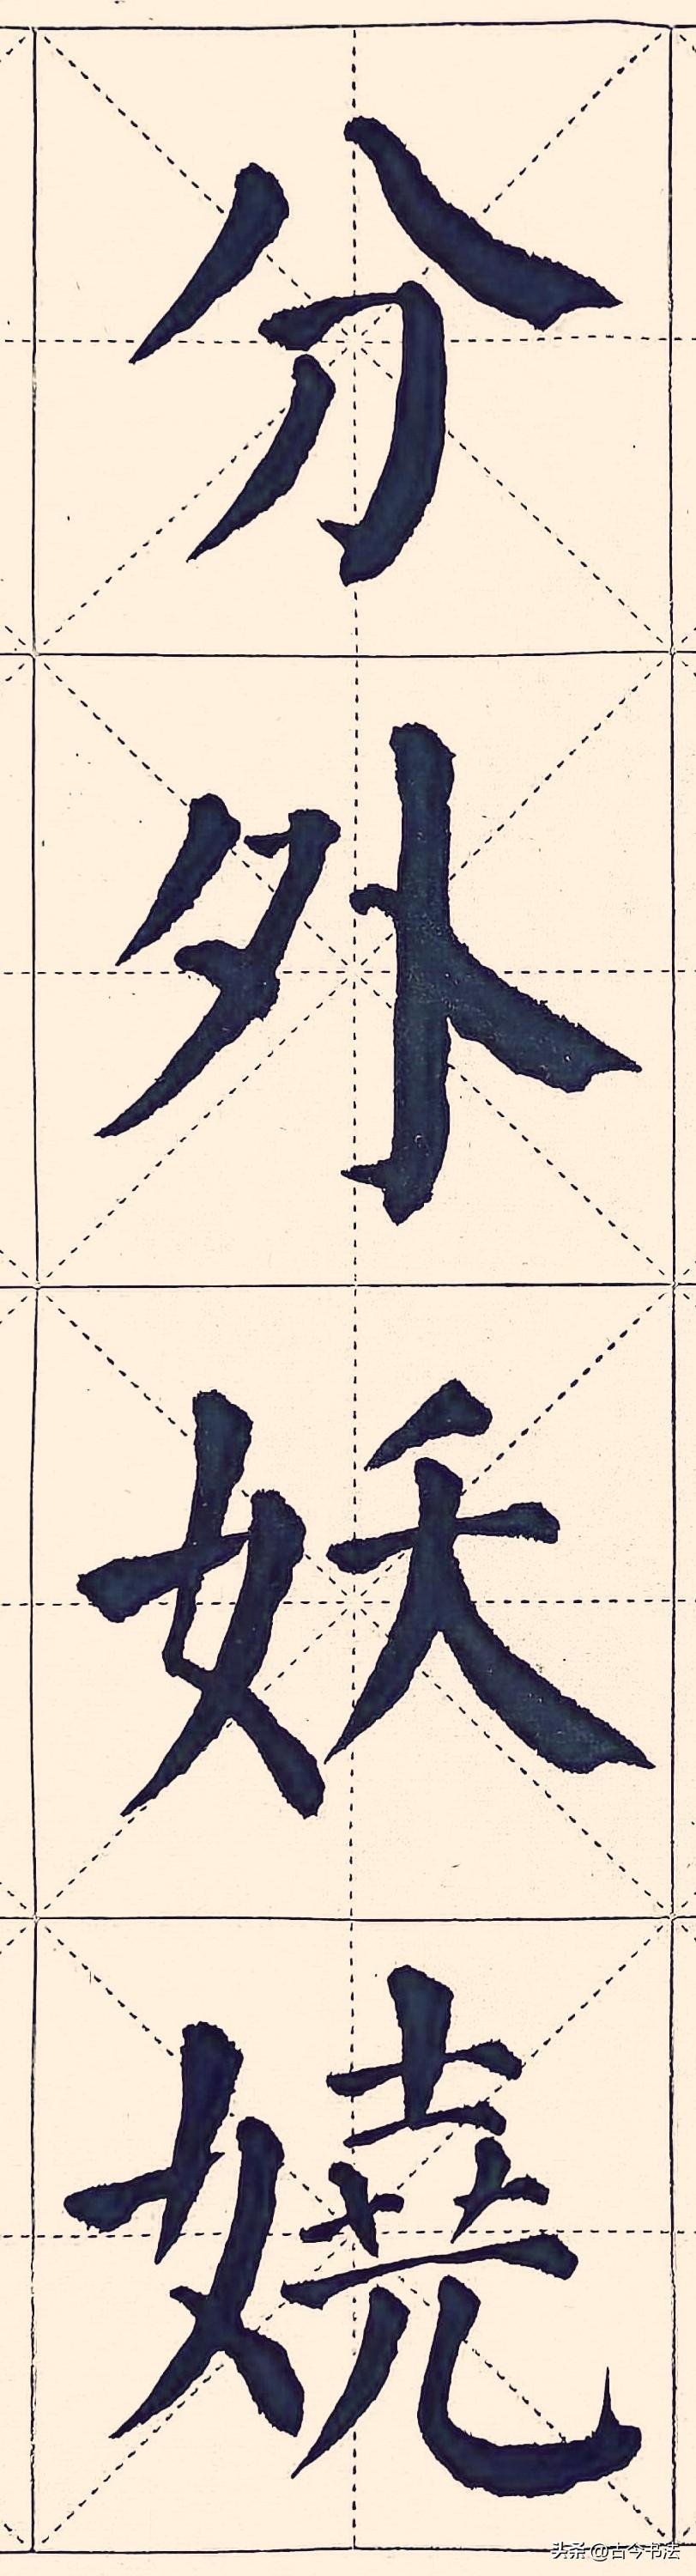 分
外
妖
嬈
头条 @古今书法